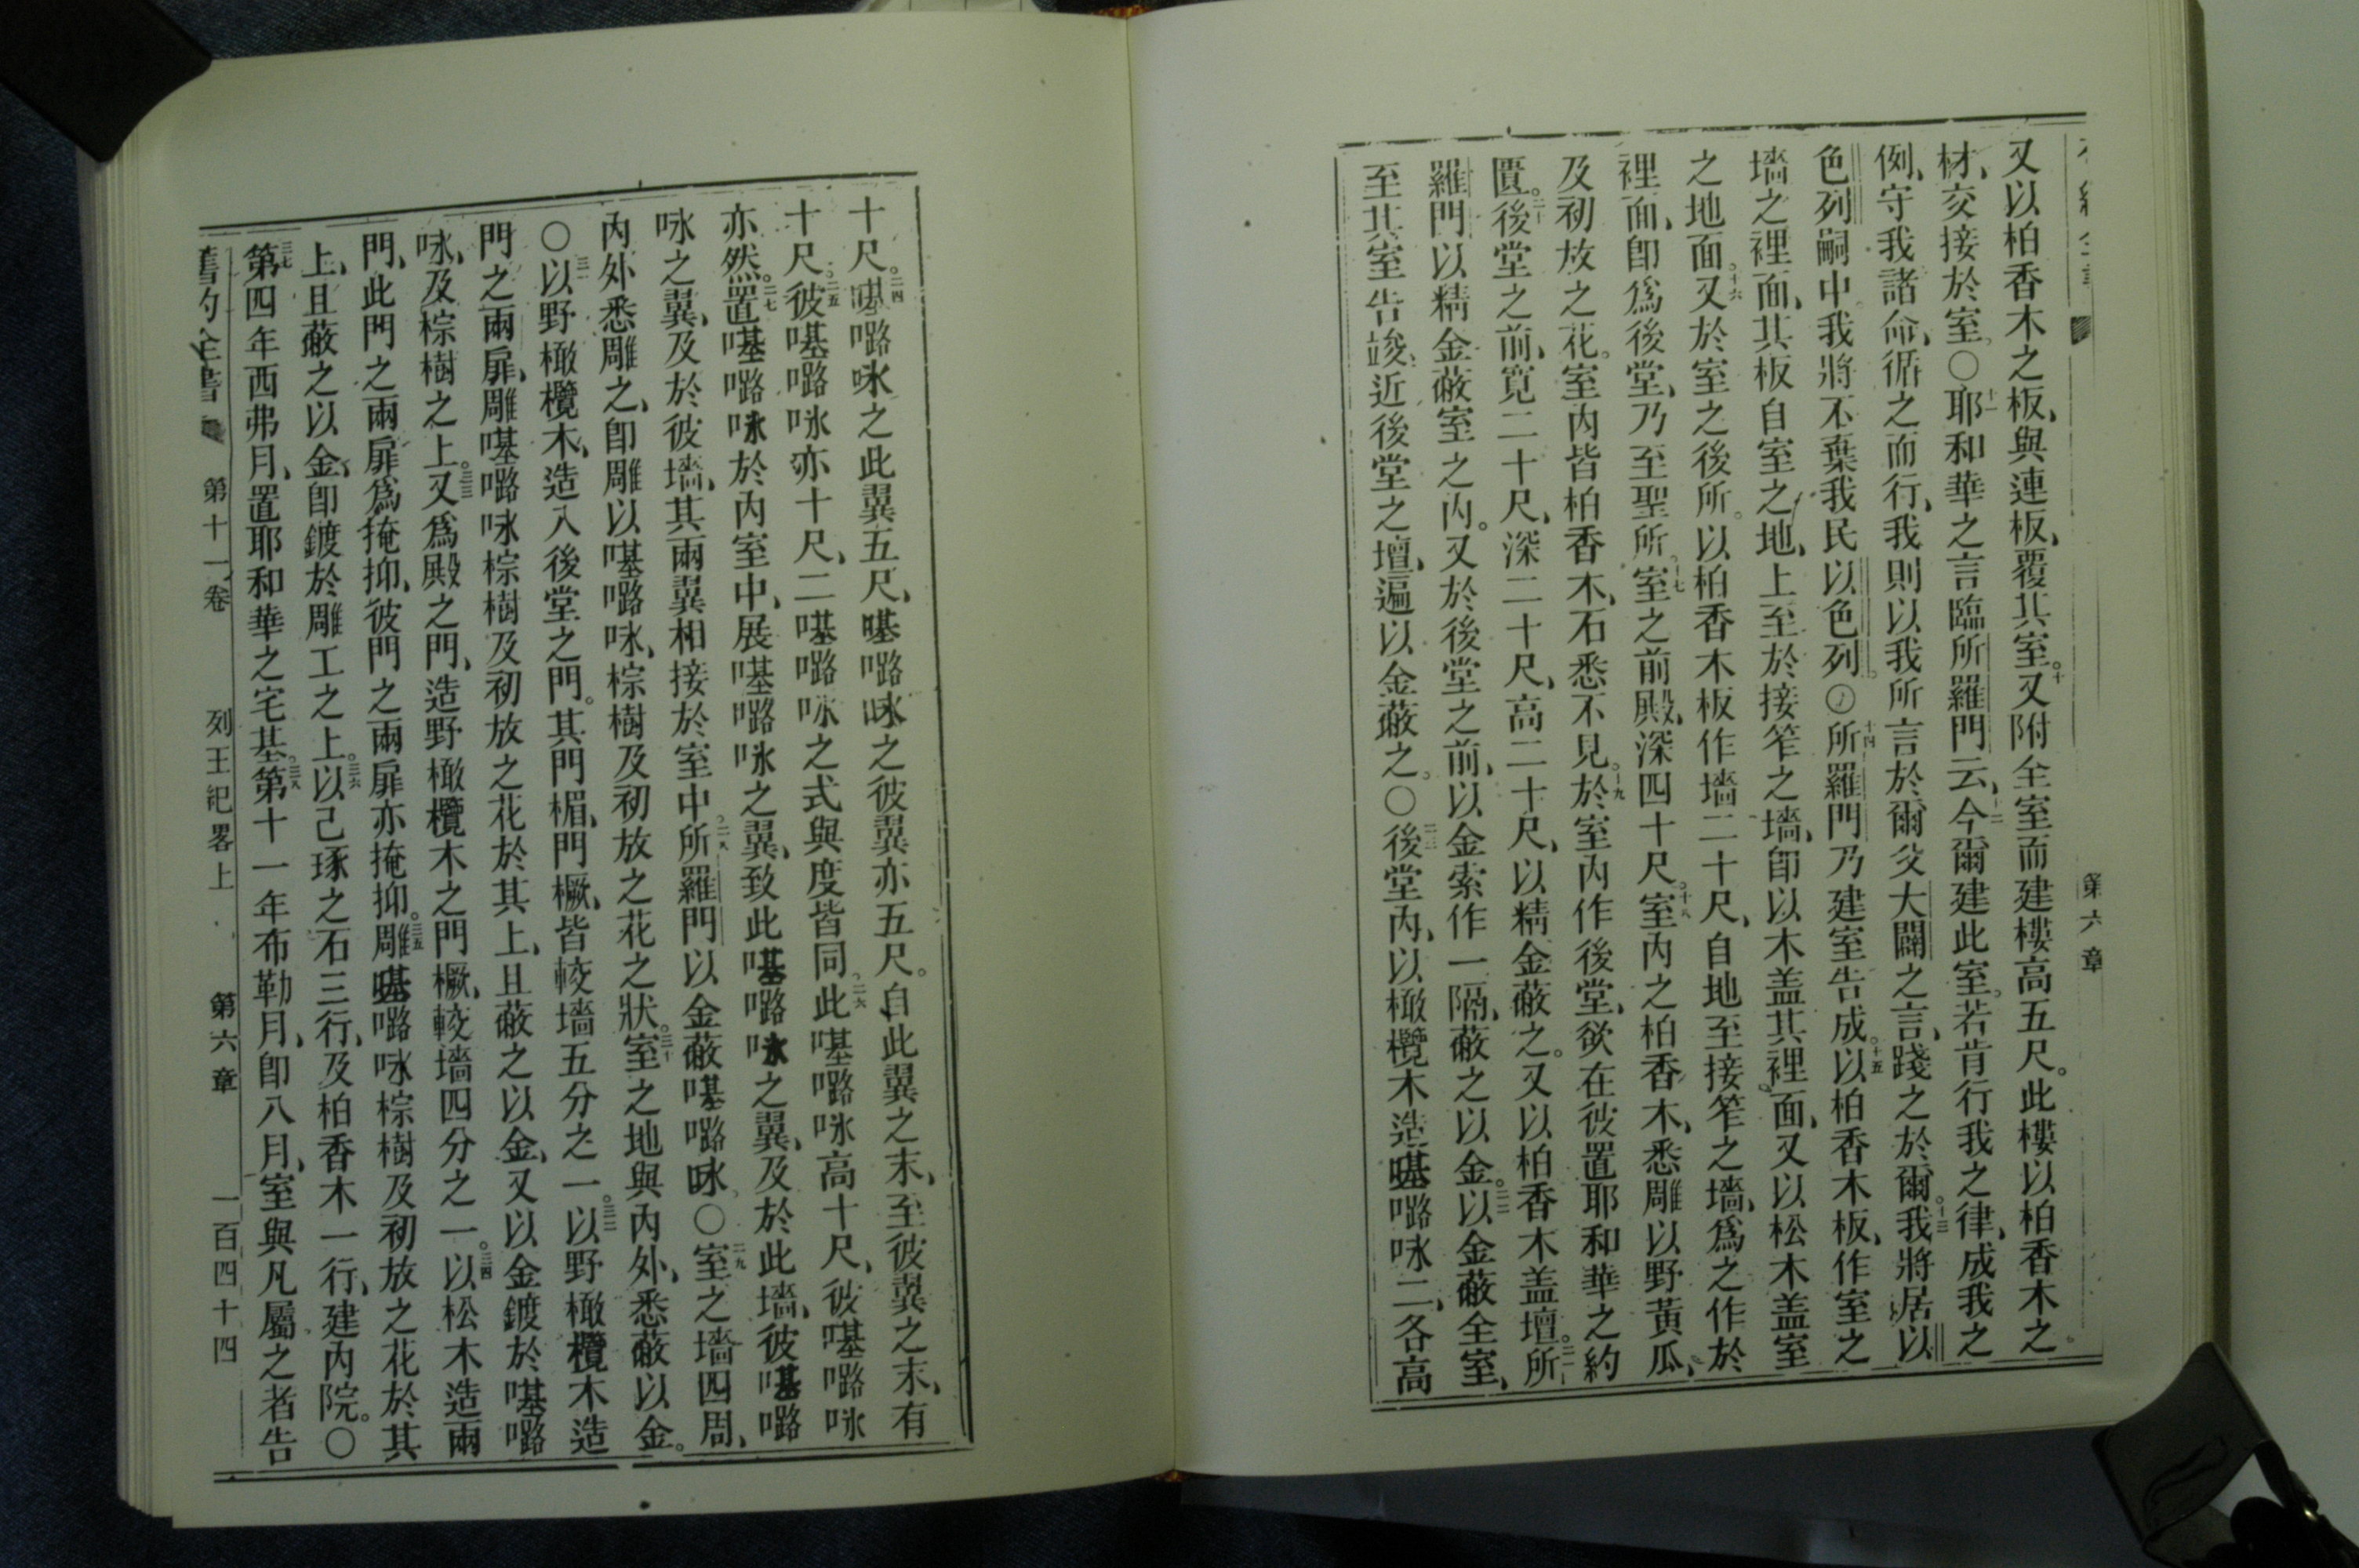 第六章
又以柏香木之板、與連板、覆其室。十又附全室而建樓高五尺。此樓以柏香木之
材、交接於室。〇十一耶和華之言臨所羅門云、十二今爾建此室。若肯行我之律、成我之
例、守我諸命、循之而行、我則以我所言於爾父大闢之言、踐之於爾。十三我將居以
色列嗣中。我將不棄我民以色列。〇十四所羅門乃建室告成。十五以柏香木板、作室之
墻之裡面、其板自室之地、上至於接笮之墻、卽以木盖其裡面、又以松木盖室
之地面。十六又於室之後所。以柏香木板作墻二十尺、自地至接笮之墻、爲之作於
裡面、卽爲後堂、乃至聖所。十七室之前殿、深四十尺。十八室內之柏香木、悉雕以野黃瓜、
及初放之花。室內皆柏香木、石悉不見。十九於室內作後堂、欲在彼置耶和華之約
匱。二十後堂之前、寬二十尺、深二十尺、高二十尺、以精金蔽之。又以柏香木盖壇。二一所
羅門以精金蔽室之內。又於後堂之前、以金索作一隔、蔽之以金。二二以金蔽全室、
至其室告竣、近後堂之壇、遍以金蔽之。〇二三後堂內、以橄欖木造㗫嚕咏二、各高
十尺。二四㗫嚕咏之此翼五尺、㗫嚕咏之彼翼亦五尺。自此翼之末、至彼翼之末、有
十尺。二五彼㗫嚕咏亦十尺、二㗫嚕咏之式與度皆同。二六此㗫嚕咏高十尺、彼㗫嚕咏
亦然。二七置㗫嚕咏於內室中、展㗫嚕咏之翼、致此㗫嚕咏之翼、及於此墻、彼㗫嚕
咏之翼、及於彼墻、其兩翼相接於室中。二八所羅門以金蔽㗫嚕咏。〇二九室之墻四周、
內外悉雕之、卽雕以㗫嚕咏、棕樹及初放之花之狀。三十室之地與內外、悉蔽以金。
〇三一以野橄欖木、造入後堂之門。其門楣、門橛、皆較墻五分之一。三二以野橄欖木造
門之兩扉、雕㗫嚕咏棕樹及初放之花於其上、且蔽之以金、又以金鍍於㗫嚕
咏、及棕樹之上。三三又爲殿之門、造野橄欖木之門橛、較墻四分之一。三四以松木造兩
門、此門之兩扉爲掩抑、彼門之兩扉亦掩抑。三五雕㗫嚕咏棕樹及初放之花於其
上、且蔽之以金、卽鍍於雕工之上。三六以己琢之石三行、及柏香木一行、建內院。〇
三七第四年西弗月、置耶和華之宅基。三八第十一年布勒月、卽八月、室與凡屬之者告
舊約全書 第十一卷 列王紀畧上 第六章 一百四十四